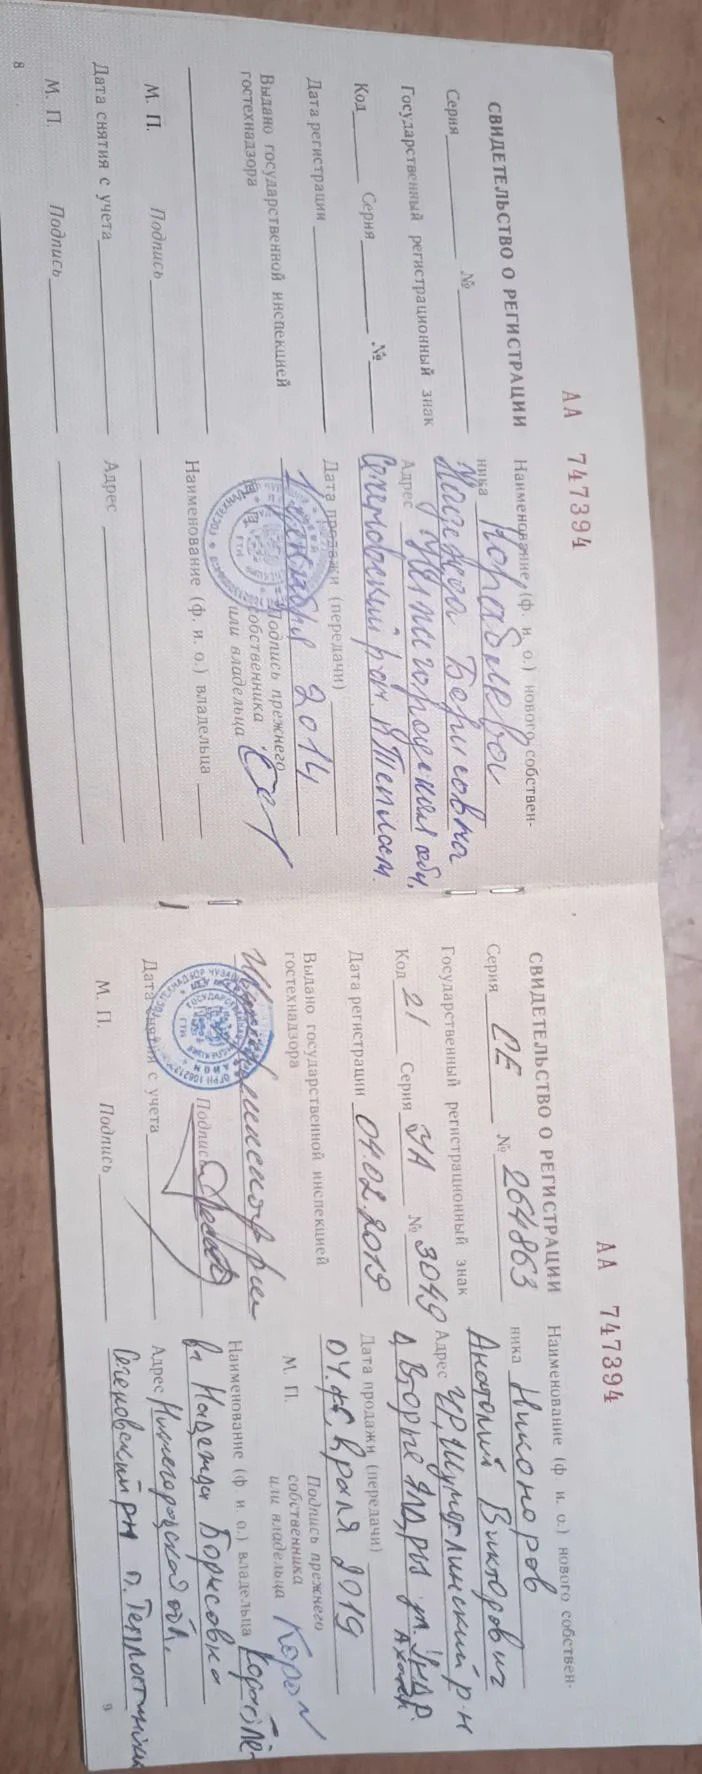 АА 747394
СВИДЕТЕЛЬСТВО О РЕГИСТРАЦИИ
Серия №
Государственный регистрационный знак
Код Серия №
Дата регистрации
Выдано государственной инспекцией
гостехнадзора
М. П. Подпись
Дата снятия с учета
М. П. Подпись
8
Наименование (ф. и. о.) нового собствен-
ника
Надежда Борисовна
Адрес Нижегородская обл.
Сеченовский р-н.
Дата продажи (передачи)
2014
Подпись прежнего
собственника
или владельца
Наименование (ф. и. о.) владельца
Адрес
АА 747394
СВИДЕТЕЛЬСТВО О РЕГИСТРАЦИИ
Серия СЕ № 264863
Государственный регистрационный знак
Код 21 Серия УА № 3049
Дата регистрации 01.02.2019
Выдано государственной инспекцией
гостехнадзора
Подпись
Дата снятия с учета
М. П. Подпись
Наименование (ф. и. о.) нового собствен-
ника Никоноров
Анатолий Викторович
Адрес ЧР, Шумерлинский р-н
д. Вторые ул.
Дата продажи (передачи)
04 2019
М. П.
Подпись прежнего
собственника
или владельца
Наименование (ф. и. о.) владельца
Надежда Борисовна
Адрес Нижегородская обл.
Сеченовский р-н п.
9